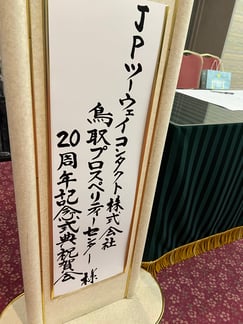 JPツーウェイコンタクト株式会社
鳥取プロスペリティーセンター 様
20周年記念式典祝賀会